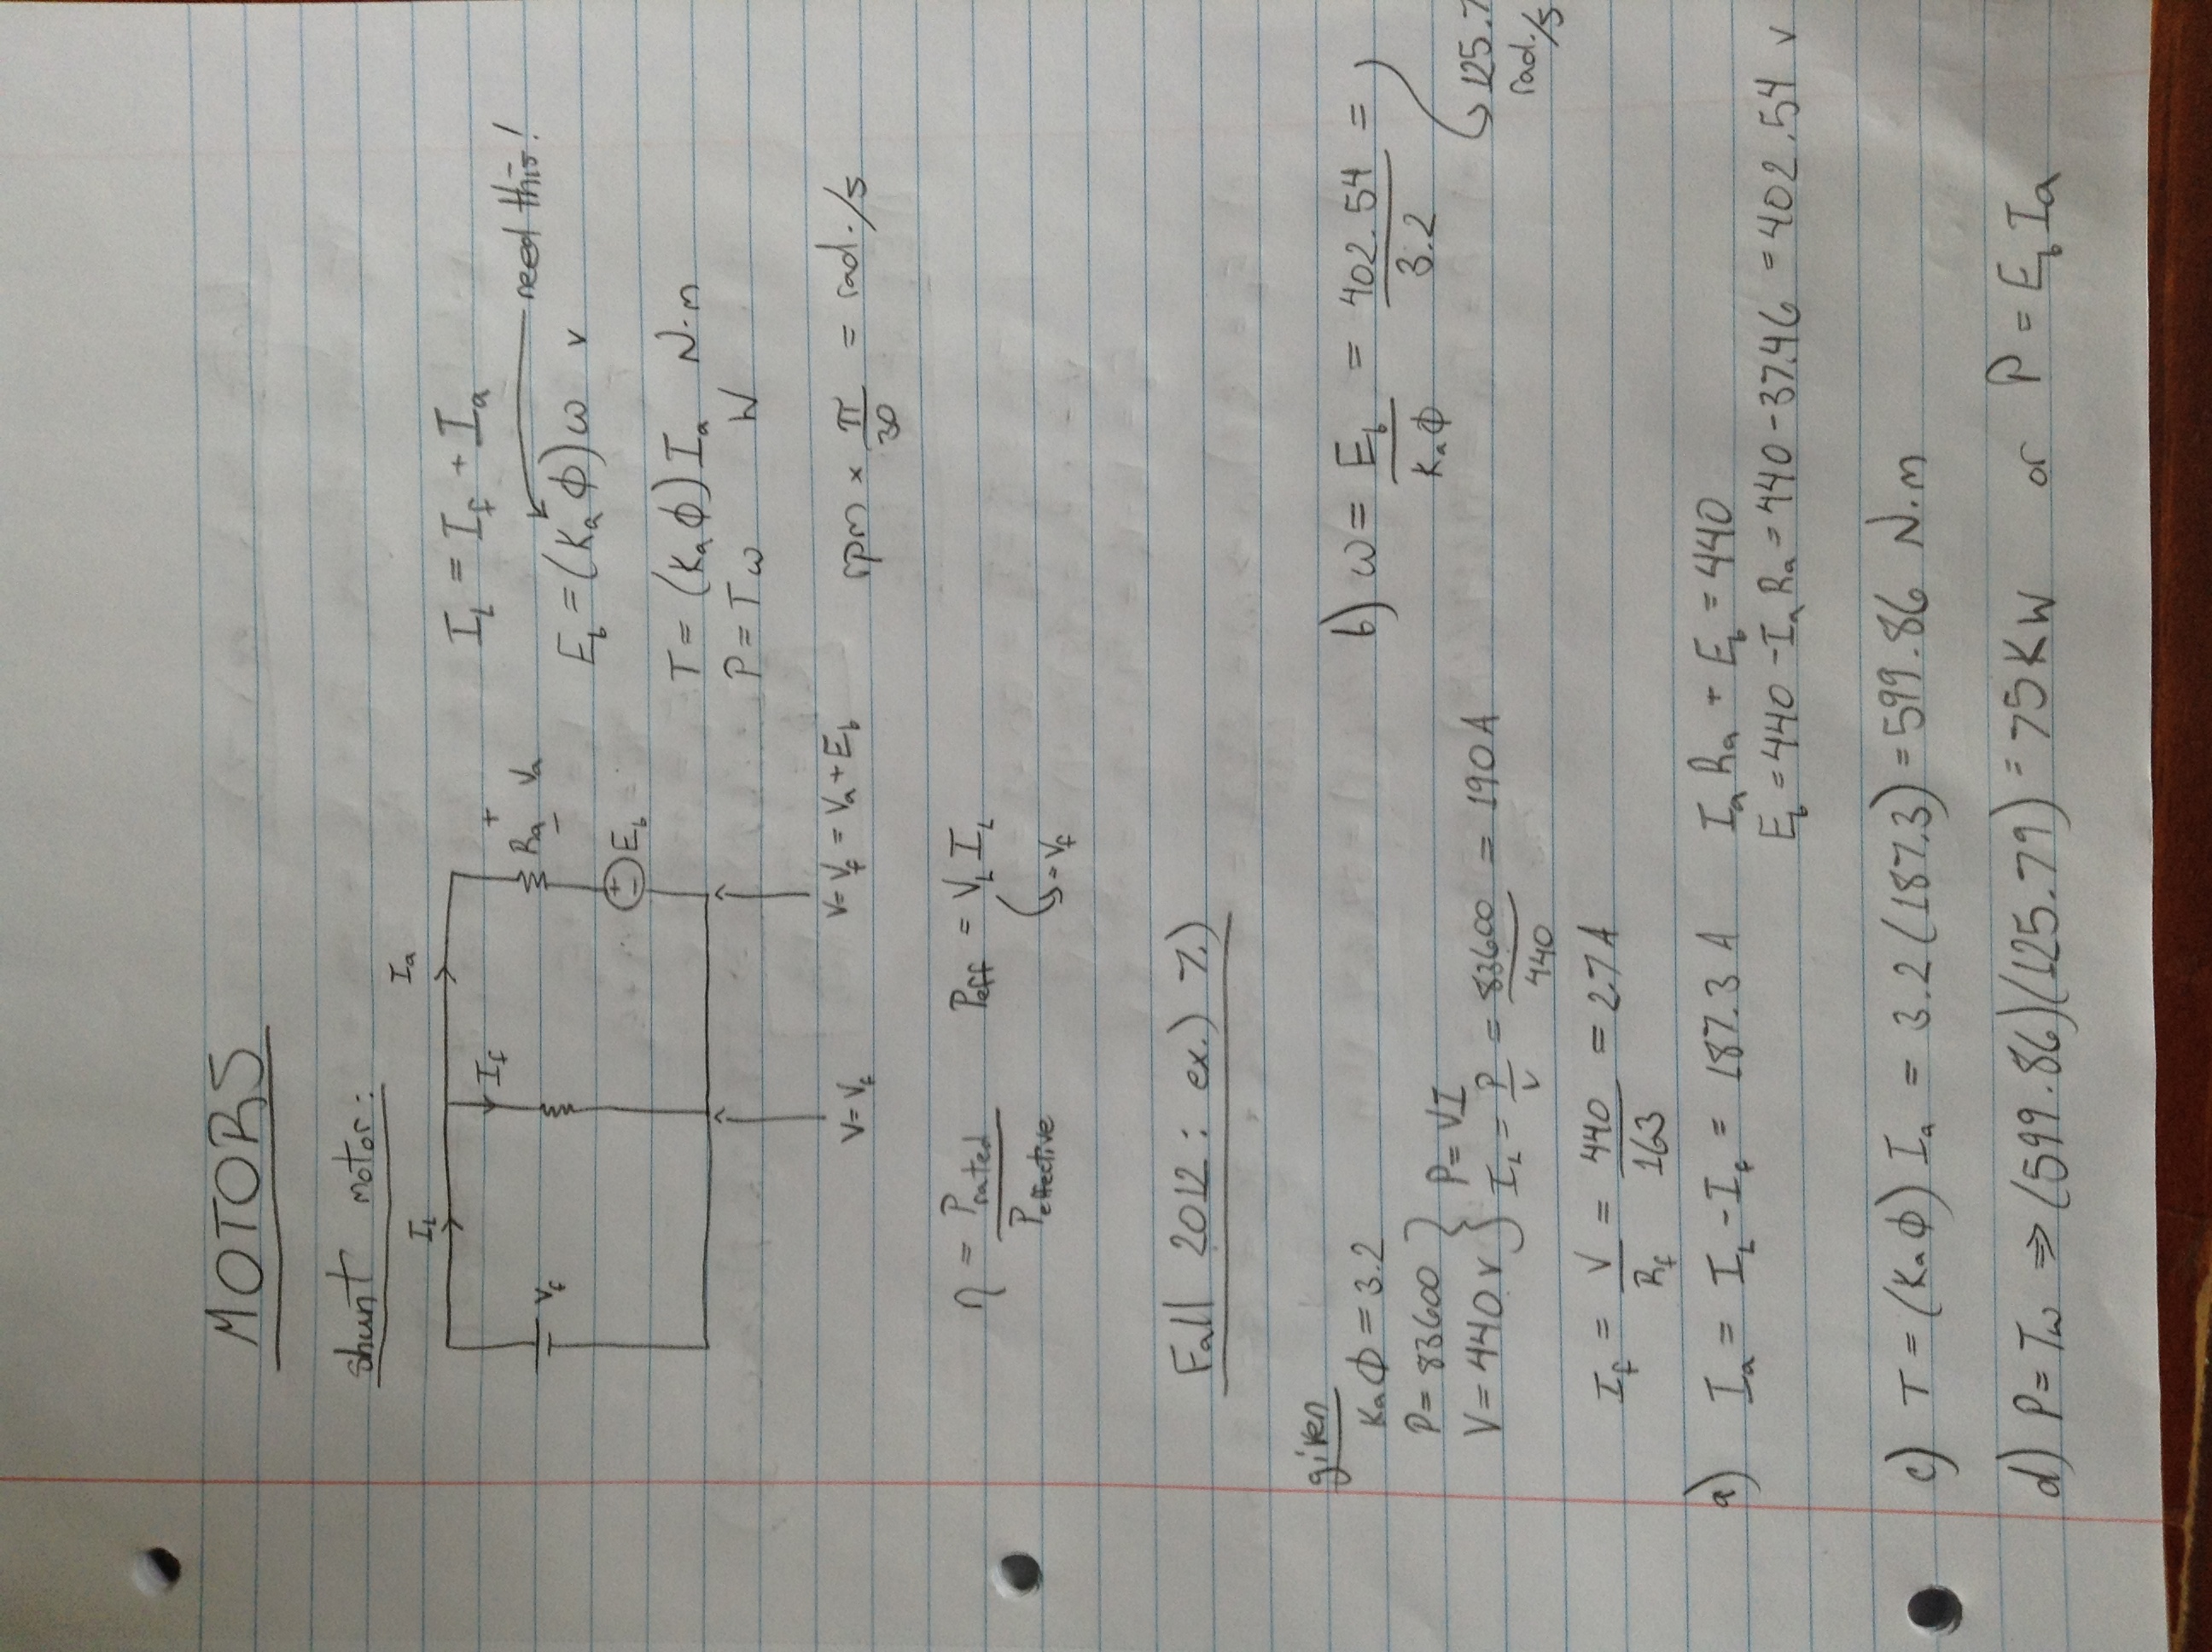 MOTORS
shunt motor:
I_L
I_a
I_f
V_f
+
R_a V_a
−
+
−
E_b
I_L = I_f + I_a
need this!
E_b = (K_a Φ) ω v
T = (K_a Φ) I_a N·m
P = T ω W
V = V_f
V = V_f = V_a + E_b
rpm × π/30 = rad./s
η = P_rated / P_effective
P_eff = V_L I_L
= V_f
Fall 2012 : ex.) 7.)
given
K_a Φ = 3.2
P = 83600
V = 440 v
P = VI
I_L = P/V = 83600/440 = 190 A
I_f = V/R_f = 440/163 = 2.7 A
b) ω = E_b / K_a Φ = 402.54 / 3.2 =
125.7
rad./s
a) I_a = I_L - I_f = 187.3 A
I_a R_a + E_b = 440
E_b = 440 - I_a R_a = 440 - 37.46 = 402.54 v
c) T = (K_a Φ) I_a = 3.2 (187.3) = 599.86 N.m
d) P = Tω ⇒ (599.86)(125.79) = 75 KW or P = E_b I_a